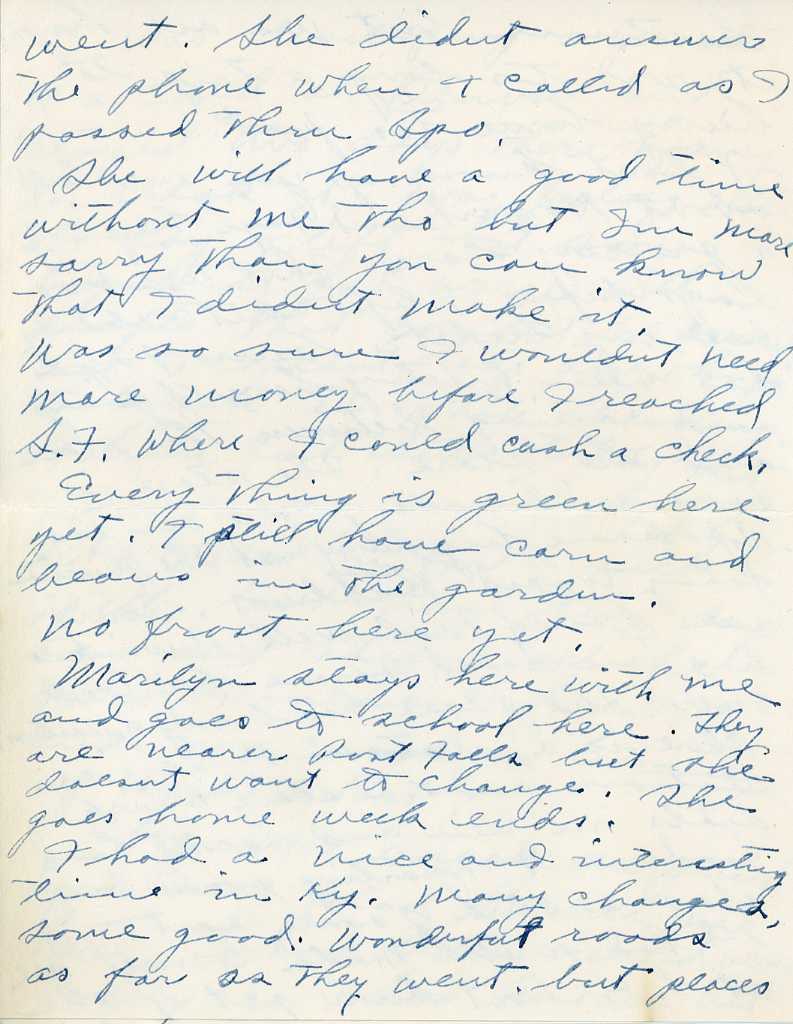 went. She didnt answer
the phone when I called as I
passed thru Spo.
She will have a good time
without me tho but Im more
sorry than you can know
that I didnt make it.
Was so sure I wouldn't need
more money before I reached
S.F. where I could cash a check.
Every thing is green here
yet. I still have corn and
beans in the garden.
No frost here yet.
Marilyn stays here with me
and goes to school here. They
are nearer Post Falls but she
doesnt want to change. She
goes home week ends.
I had a nice and interesting
time in Ky. Many changes,
some good. Wonderful roads
as far as they went. but places